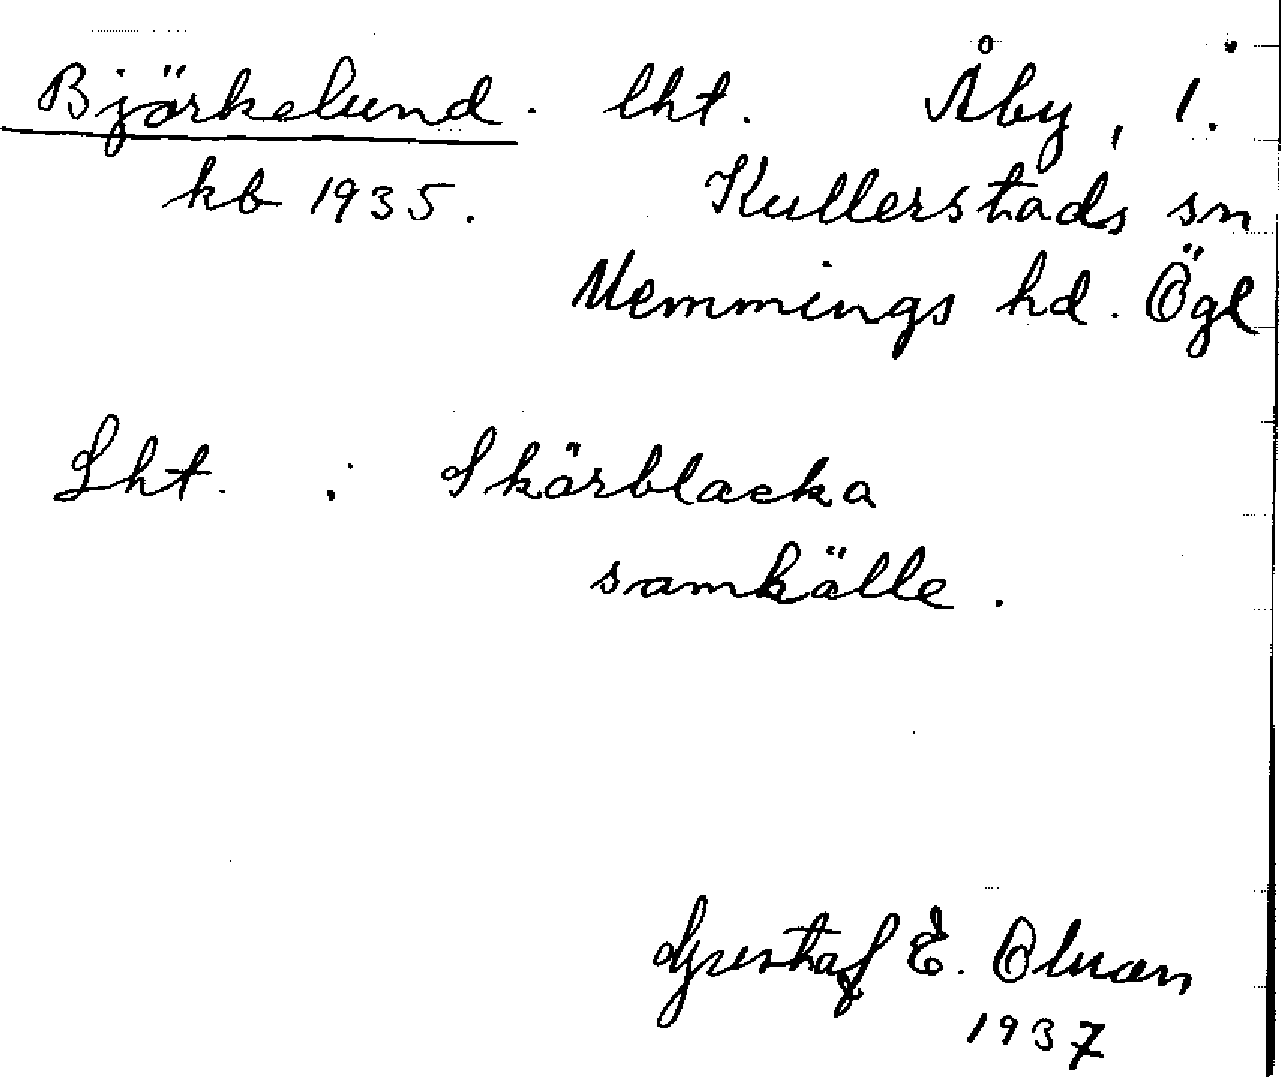 Björkelund. lht. Åby, 1.
kb 1935. Kullerstads sn
Memmings hd. Ögl
Lht. : Skärblacka
samhälle.
Gustaf E. Olson
1937